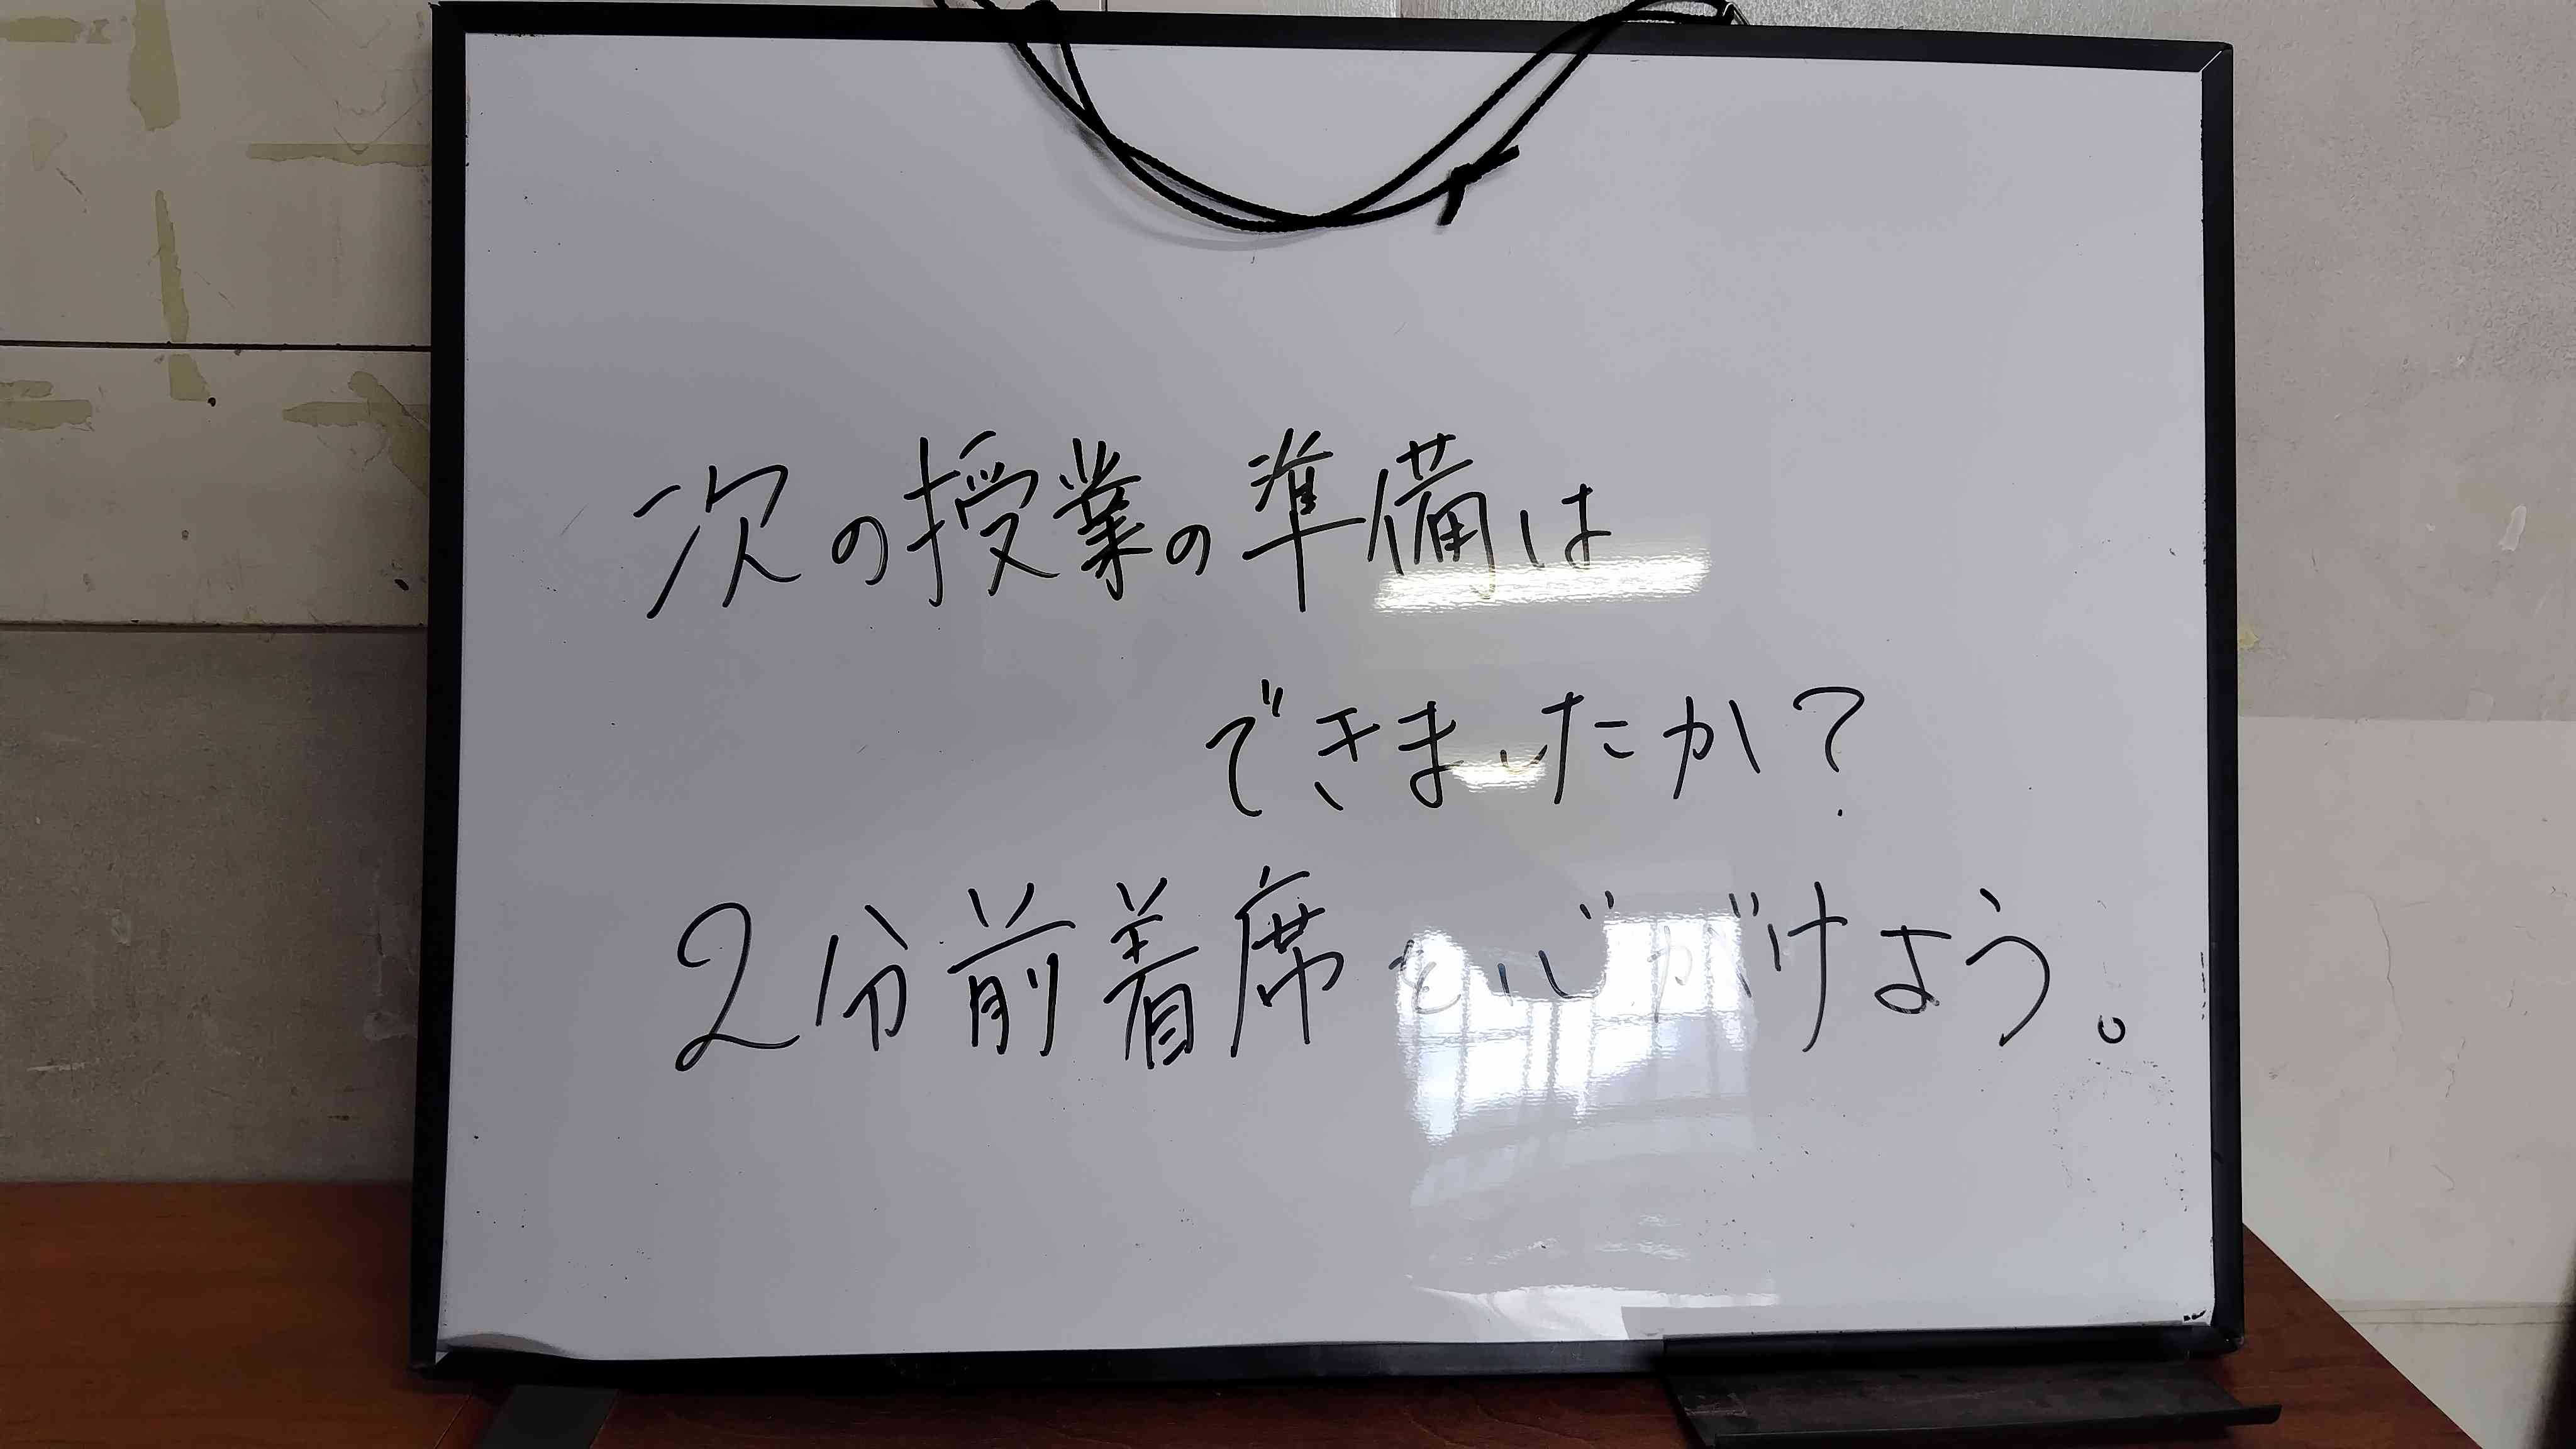 次の授業の準備は
できましたか?
2分前着席を心がけよう。